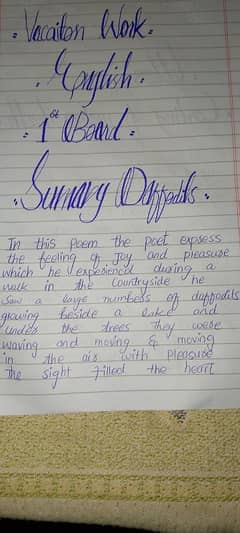 . Vacaiton Work .
. English .
. 1st Board .
. Sumary Daffodils .
In this poem the poet expsess
the feeling of Joy and pleasure
which he experienced during a
walk in the Countryside he
Saw a large numbers of daffodils
growing beside a lake and
under the trees they were
waving and moving & moving
in the air with pleasure
The sight filled the heart